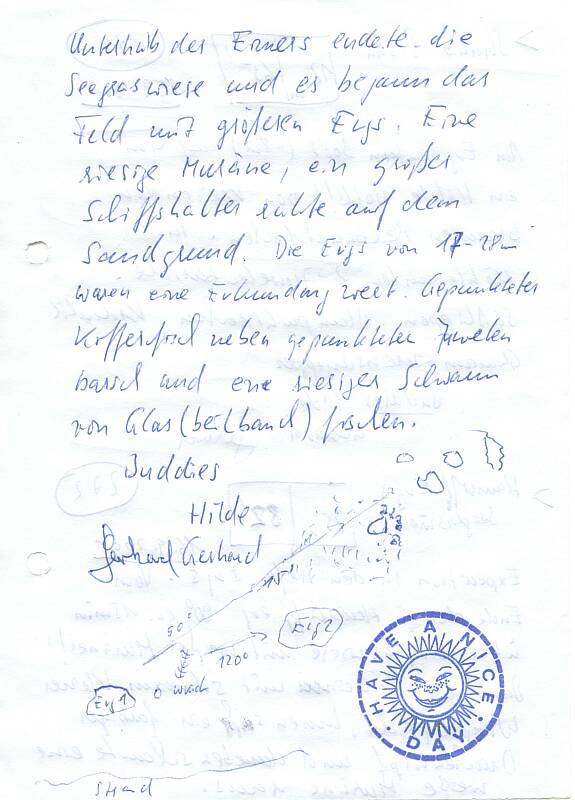 Unterhalb des Erners endete die
Seegraswiese und es begann das
Feld mit größeren Ergs. Eine
riesige Muräne, ein großer
Schiffshalter ruhte auf dem
Sandgrund. Die Ergs von 17-28m
waren eine Erkundung wert. Gepunkteter
Kofferfisch neben gepunkteten Juwelen
barsch und eine riesiger Schwarm
von Glas(beilbauch)fischen.
Buddies
Hilde
Gerhard Gerhard
15'
50°
Erg2
120°
wrack
Erg1
Strand
HAVE A NICE DAY